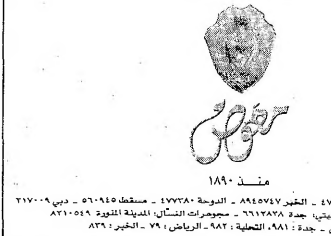 معوض
منذ ١٨٩٠
٤٧ - الخبر ٨٩٤٥٧٤٧ - الدوحة ٤٧٧٣٨٠ - مسقط ٥٦٠٩٤٥ - دبي ٣١٧٠٠٩
جدة ٦٦١٣٨٣٨ - مجوهرات النسال: المدينة المنورة ٨٢١٠٥٤٩
- جدة: ٩٨١، التحلية: ٩٨٢ - الرياض: ٧٩ - الخبر: ٨٣٩